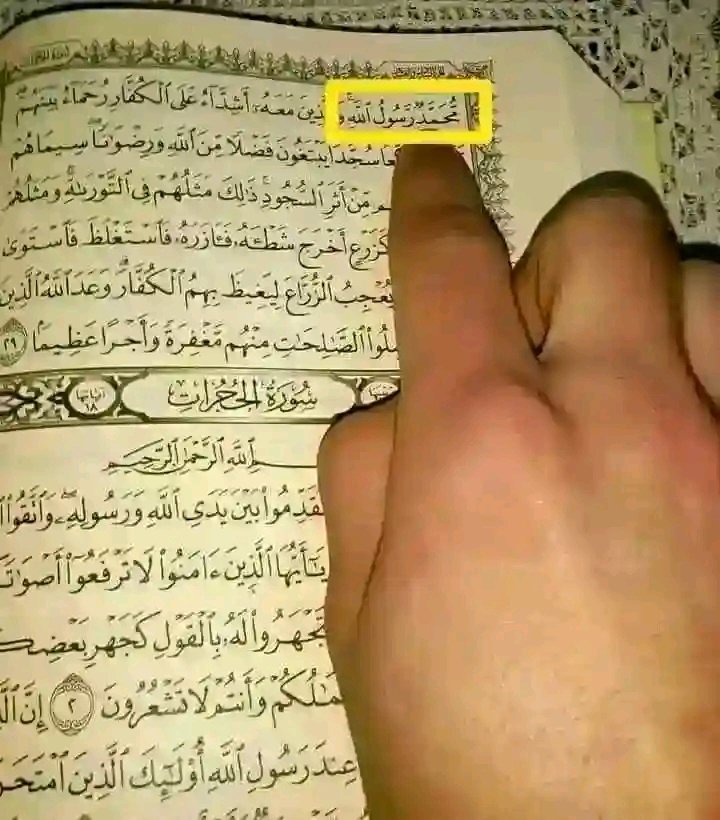 مُّحَمَّدٌ رَّسُولُ ٱللَّهِ وَٱلَّذِينَ مَعَهُۥٓ أَشِدَّآءُ عَلَى ٱلْكُفَّارِ رُحَمَآءُ بَيْنَهُمْ
سُجَّدًا يَبْتَغُونَ فَضْلًا مِّنَ ٱللَّهِ وَرِضْوَٰنًا سِيمَاهُمْ
مِّنْ أَثَرِ ٱلسُّجُودِ ذَٰلِكَ مَثَلُهُمْ فِى ٱلتَّوْرَىٰةِ وَمَثَلُهُمْ
كَزَرْعٍ أَخْرَجَ شَطْـَٔهُۥ فَـَٔازَرَهُۥ فَٱسْتَغْلَظَ فَٱسْتَوَىٰ
يُعْجِبُ ٱلزُّرَّاعَ لِيَغِيظَ بِهِمُ ٱلْكُفَّارَ وَعَدَ ٱللَّهُ ٱلَّذِينَ
ٱلصَّٰلِحَٰتِ مِنْهُم مَّغْفِرَةً وَأَجْرًا عَظِيمًۢا ٢٩
سُورَةُ الحُجُرَاتِ آياتها ١٨
ٱللَّهِ ٱلرَّحْمَٰنِ ٱلرَّحِيمِ
بَيْنَ يَدَىِ ٱللَّهِ وَرَسُولِهِۦ وَٱتَّقُوا۟
يَٰٓأَيُّهَا ٱلَّذِينَ ءَامَنُوا۟ لَا تَرْفَعُوٓا۟
تَجْهَرُوا۟ لَهُۥ بِٱلْقَوْلِ كَجَهْرِ
وَأَنتُمْ لَا تَشْعُرُونَ ٢ إِنَّ
عِندَ رَسُولِ ٱللَّهِ أُو۟لَٰٓئِكَ ٱلَّذِينَ